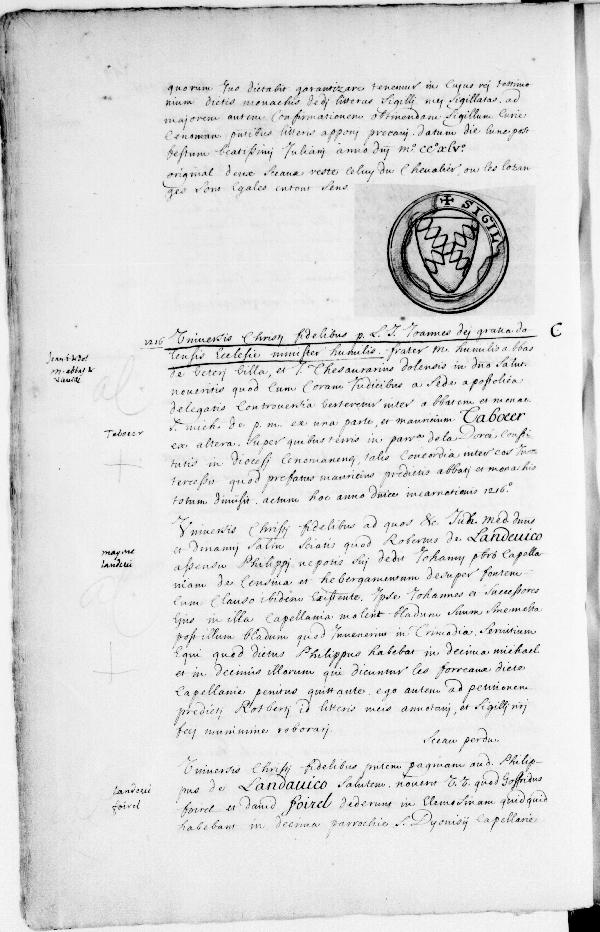 quorum Jus dictabit garantizare tenemur in Cujus rej testimo
nium dictis monachis dedj litteras Sigillj mej Sigillatas. ad
majorem autem Confirmationem obtinendam Sigillum Curie
Cenoman. pntibus litteris apponj precavj. datum die lune post
festum beatissimj Julianj anno dnj mº. ccº. xlvº.
original deux Sceaux reste Celuy du Chevalier, ou les lozan
ges Sont Egales en tout Sens
✠ SIGIL
1216 Universis Christj fidelibus p. L. J. Joannes dej gratia do
lensis Ecclesie minister humilis. frater M. humilis abbas
de Veterj Villa, et J. Thesaurarius dolensis in dno Salut.
noveritis quod Cum Coram Judicibus a Sede apostolica
delegatis Controversia verteretur inter abbatem et monac.
S. mich. de p. m. ex una parte, et mauricium Taboer
ex altera. Super quibus terris in parra de la Dorea Consti
tutis in diocesj Cenomanenj, talis Concordia inter eos Inte
tercessit quod prefatus mauricius predictis abbatj et monachis
totum dimisit. actum hoc anno dnice incarnationis 1216º.
Universis Christj fidelibus ad quos &c Juh. Med. dnus
et Dinannij Salm Sciatis quod Robertus de Landevico
assensu Philippj nepotis Suj dedit Johannj pbrō Capella
niam de Censiva et hebergamentum desuper fontem
Cum Clauso ibidem Existente. Ipse Johannes et Successores
Ejus in illa Capellania molent bladum Suum Inemolta
post illum bladum quod Invenerint in Crimadia. Servitium
Equi quod dictus Philippus habebat in decima michael
et in decimis illorum qui dicuntur les forreaux dicte
Capellanie penitus quittante. ego autem ad petitionem
predictj Rotbertj id litteris meis annotavj, et Sigillj mej
fecj munimine roborarj.
Sceau perdu
Universis Christj fidelibus pntem paginam aud. Philip
pus de Landavico Salutem. noverit V. V. quod Goffridus
foirel et david foirel dederunt in Elemosinam quidquid
habebant in decima parrochie S. Dyonisij Capellanie
Jean Ev. de Dol
M. abbas de
Taboer
mayne
Landevi
Landevi
foirel